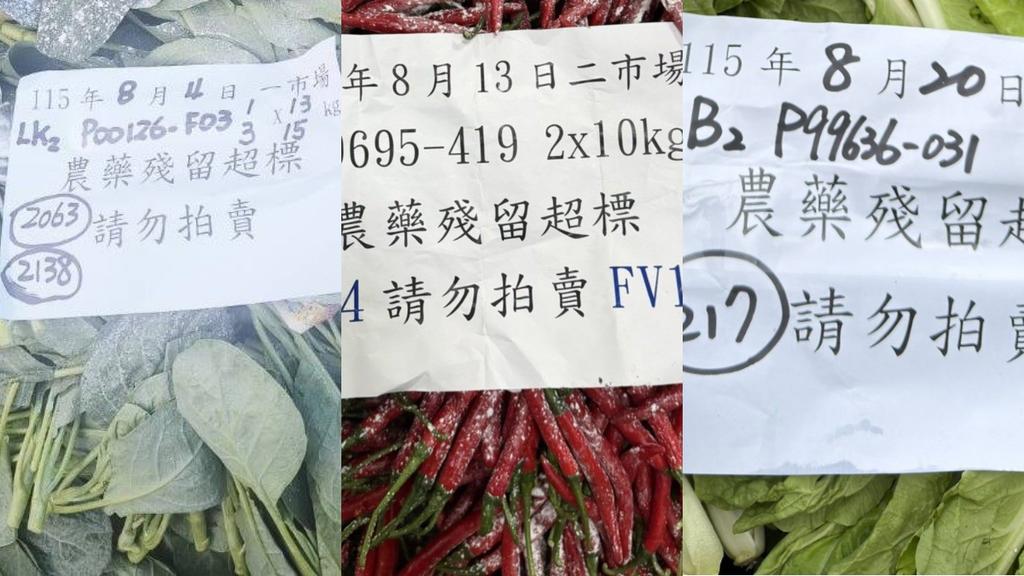 115年8月4日一市場
LK2 P00126-F03 1 3 x 13 15 kg
農藥殘留超標
2063 請勿拍賣
2138
年8月13日二市場
0695-419 2x10kg
農藥殘留超標
4 請勿拍賣 FV1
115年8月20日
B2 P99636-031
農藥殘留超
217 請勿拍賣